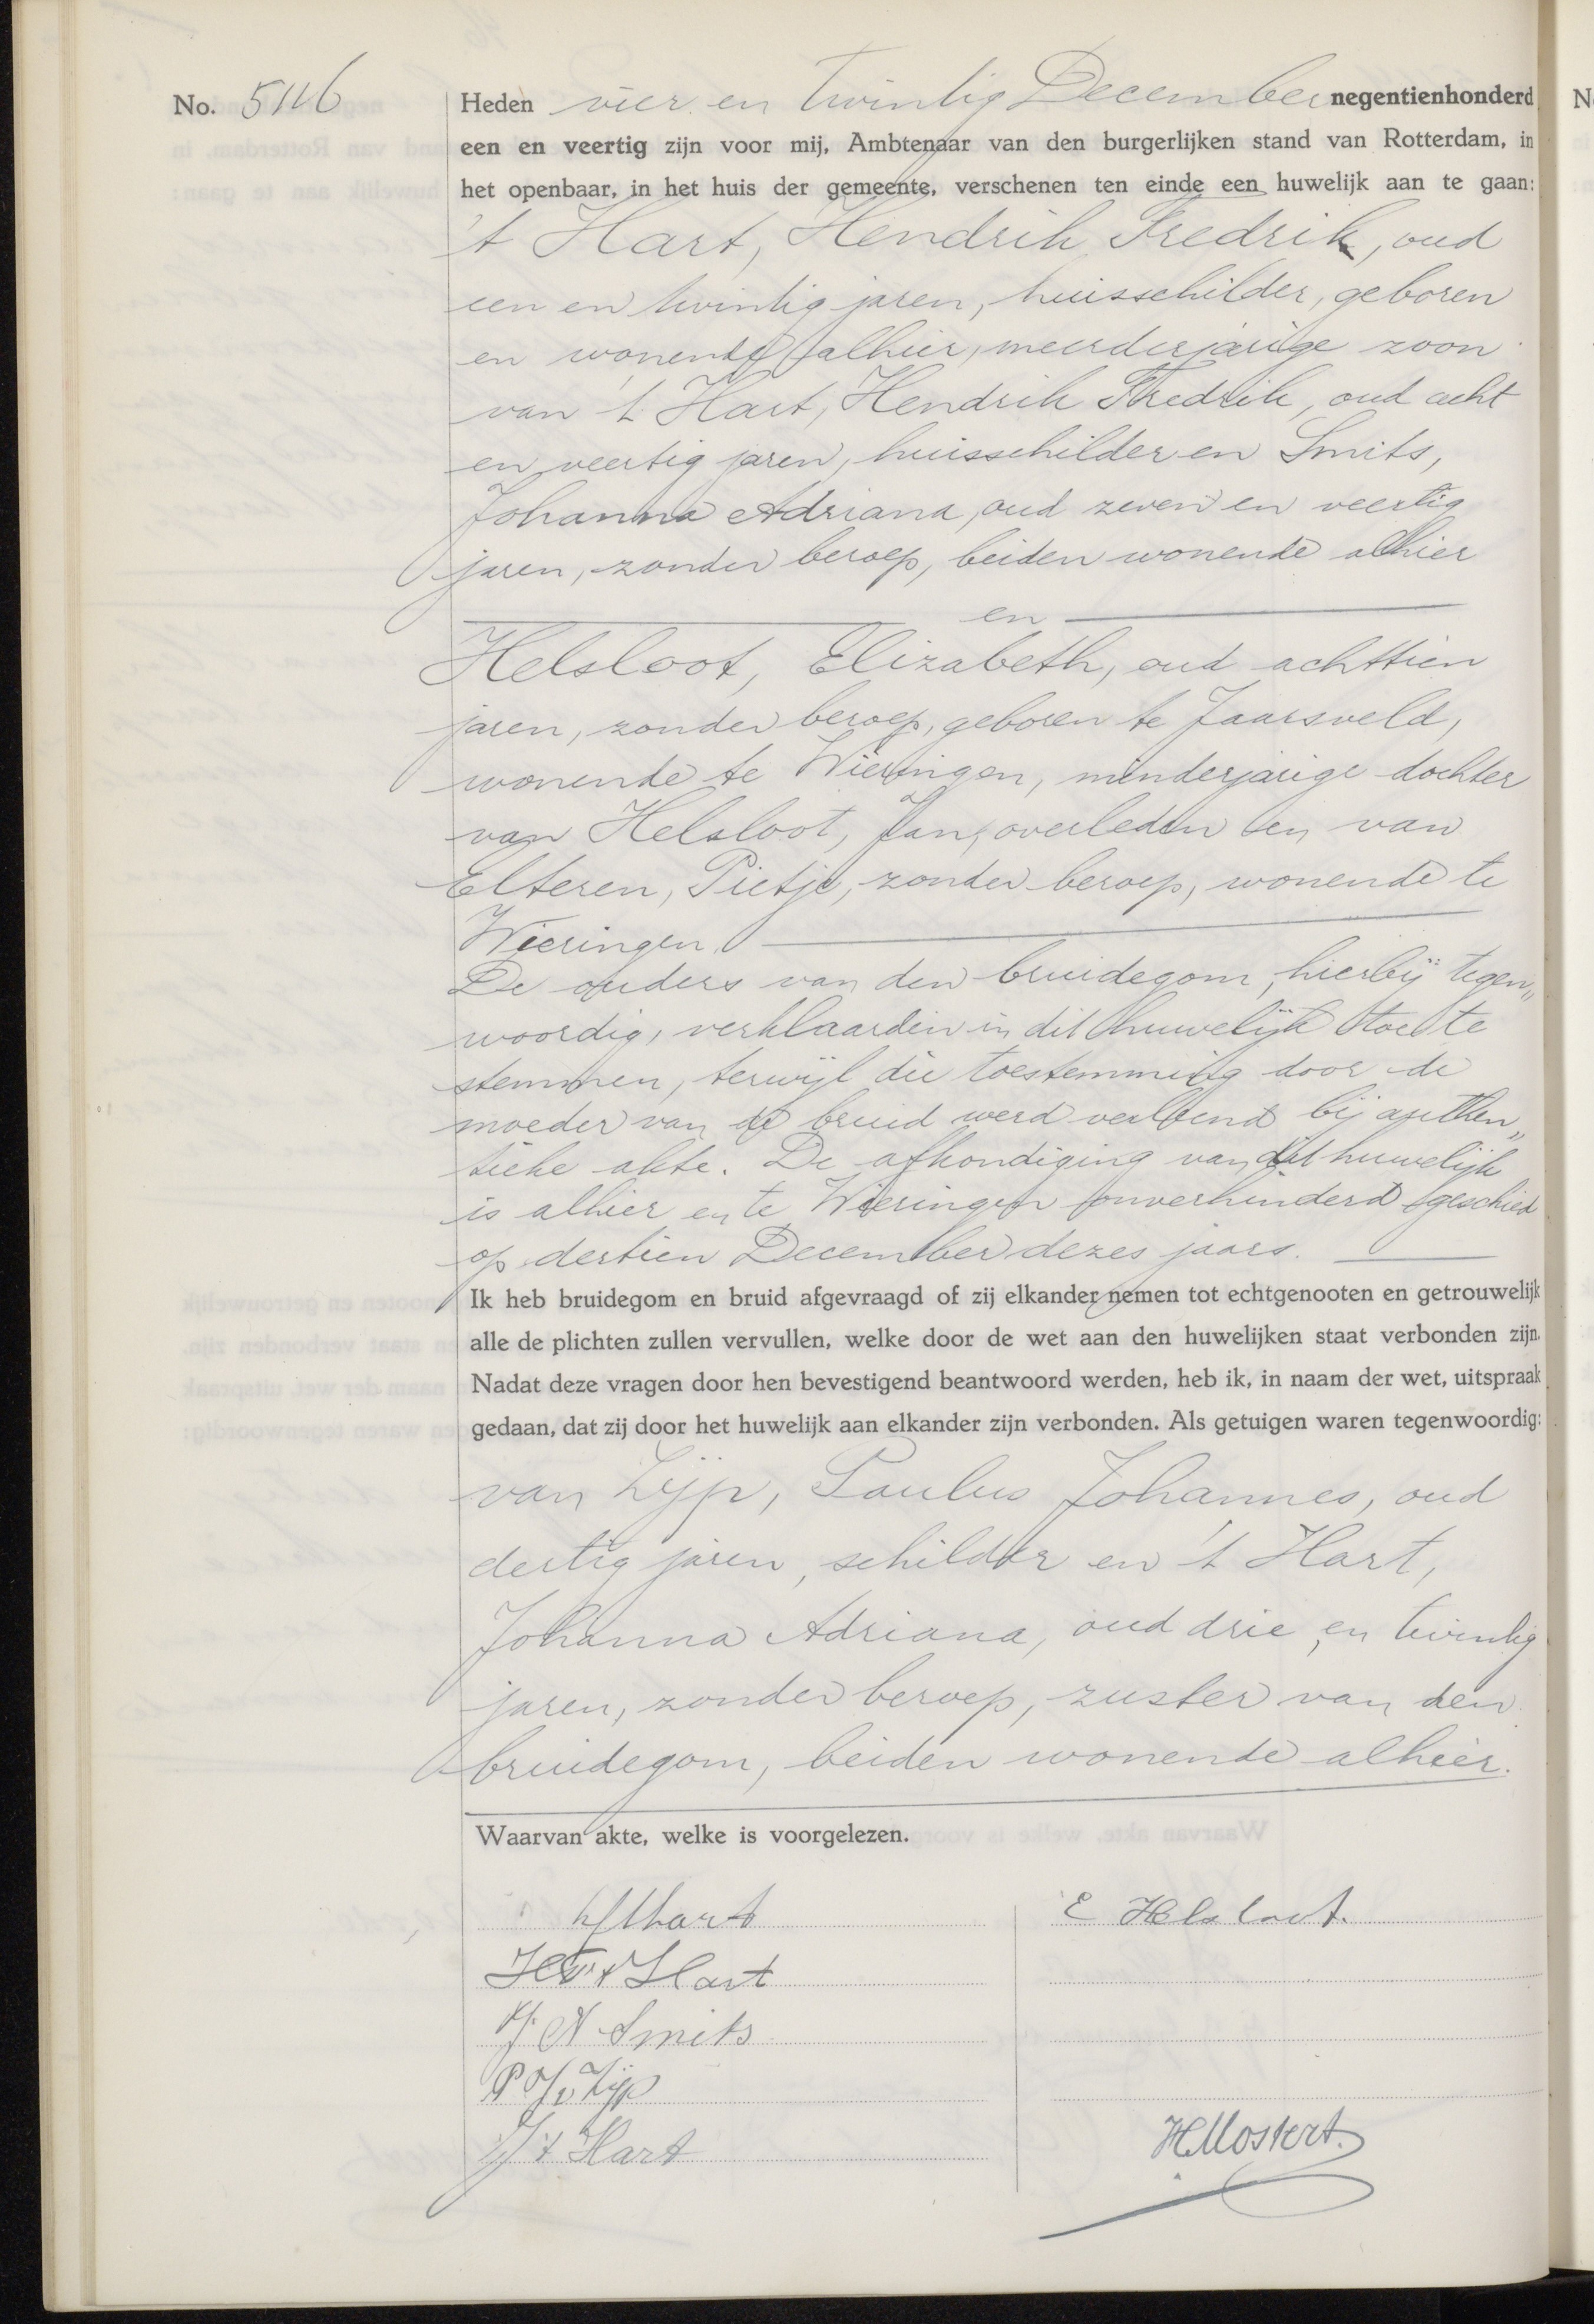 No. 5116
Heden vier en twintig December negentienhonderd
een en veertig zijn voor mij, Ambtenaar van den burgerlijken stand van Rotterdam, in
het openbaar, in het huis der gemeente, verschenen ten einde een huwelijk aan te gaan:
't Hart, Hendrik Fredrik, oud
een en twintig jaren, huisschilder, geboren
en wonende alhier, meerderjarige zoon
van 't Hart, Hendrik Fredrik, oud acht
en veertig jaren, huisschilder en Smits,
Johanna Adriana, oud zeven en veertig
jaren, zonder beroep, beiden wonende alhier
en
Helsloot, Elizabeth, oud achttien
jaren, zonder beroep, geboren te Jaarsveld,
wonende te Wieringen, minderjarige dochter
van Helsloot, Jan, overleden en van
Elteren, Pietje, zonder beroep, wonende te
Wieringen.
De ouders van den bruidegom, hierbij tegen„
woordig, verklaarden in dit huwelijk toe te
stemmen, terwijl die toestemming door de
moeder van de bruid werd verleend bij authen„
tieke akte. De afkondiging van dit huwelijk
is alhier en te Wieringen onverhinderd geschied
op dertien December dezes jaars.
Ik heb bruidegom en bruid afgevraagd of zij elkander nemen tot echtgenooten en getrouwelijk
alle de plichten zullen vervullen, welke door de wet aan den huwelijken staat verbonden zijn.
Nadat deze vragen door hen bevestigend beantwoord werden, heb ik, in naam der wet, uitspraak
gedaan, dat zij door het huwelijk aan elkander zijn verbonden. Als getuigen waren tegenwoordig:
van Zijp, Paulus Johannes, oud
dertig jaren, schilder en 't Hart,
Johanna Adriana, oud drie en twintig
jaren, zonder beroep, zuster van den
bruidegom, beiden wonende alhier.
Waarvan akte, welke is voorgelezen.
E Helsloot.
H F 't Hart
J. A Smits
P J v Zijp
J 't Hart
H Mostert.